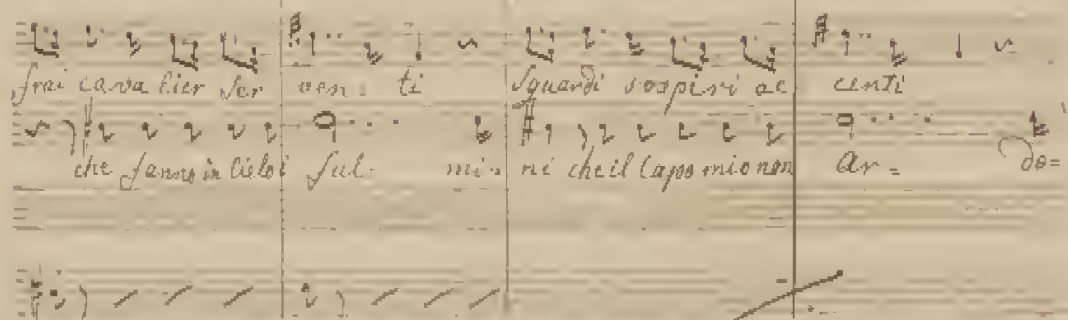 frai cava lier ser ven = ti Sguardi sospiri ac centi
che fanno in cielo i ful = mi = ni che il Capo mio non Ar = do =